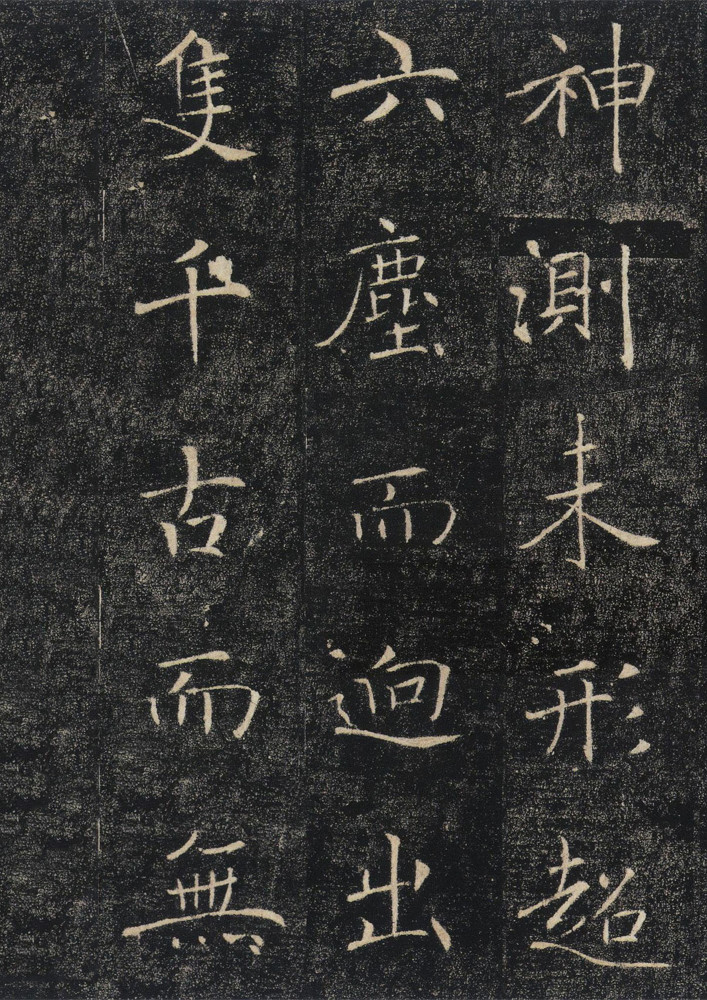 神測未形超
六塵而逈出
隻千古而無